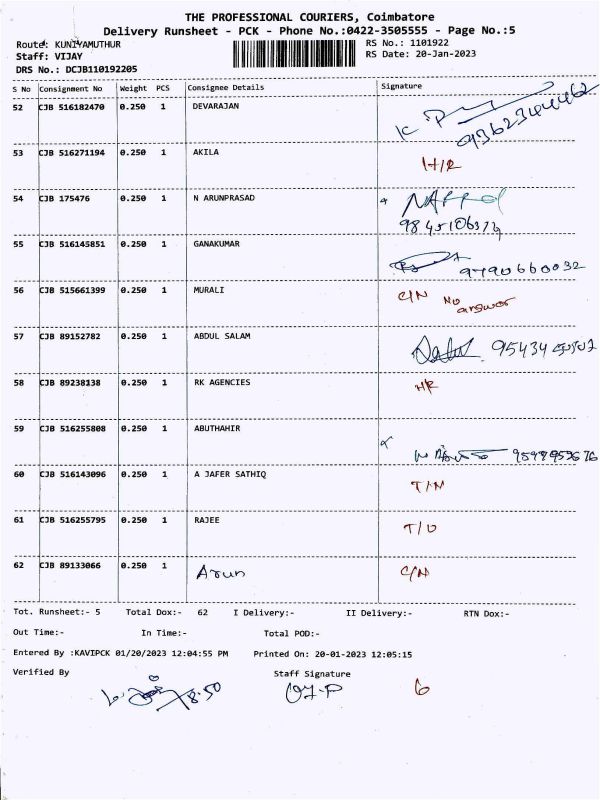 THE PROFESSIONAL COURIERS, Coimbatore
Delivery Runsheet - PCK - Phone No.:0422-3505555 - Page No.:5
Route: KUNIYAMUTHUR
RS No.: 1101922
Staff: VIJAY
RS Date: 20-Jan-2023
DRS No.: DCJB110192205
S No Consignment No Weight PCS Consignee Details Signature
52 CJB 516182470 0.250 1 DEVARAJAN
9362344462
53 CJB 516271194 0.250 1 AKILA
H/R
54 CJB 175476 0.250 1 N ARUNPRASAD
55 CJB 516145851 0.250 1 GANAKUMAR
9790660032
56 CJB 515661399 0.250 1 MURALI
C/N No answer
57 CJB 89152782 0.250 1 ABDUL SALAM
95434
58 CJB 89238138 0.250 1 RK AGENCIES
HR
59 CJB 516255808 0.250 1 ABUTHAHIR
60 CJB 516143096 0.250 1 A JAFER SATHIQ
T/N
61 CJB 516255795 0.250 1 RAJEE
T/U
62 CJB 89133066 0.250 1 Arun C/N
Tot. Runsheet:- 5 Total Dox:- 62 I Delivery:- II Delivery:- RTN Dox:-
Out Time:- In Time:- Total POD:-
Entered By :KAVIPCK 01/20/2023 12:04:55 PM Printed On: 20-01-2023 12:05:15
Verified By Staff Signature
8.50 6